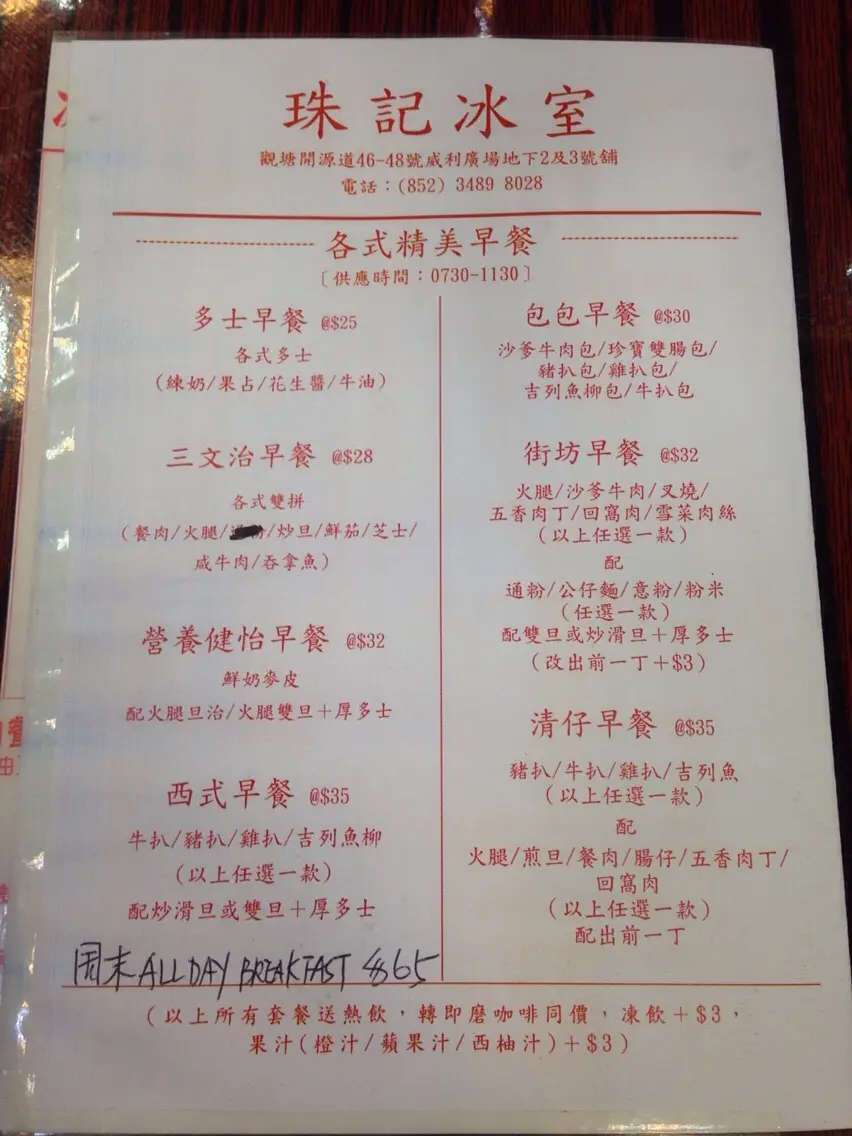 珠記冰室
觀塘開源道46-48號威利廣場地下2及3號舖
電話：(852) 3489 8028
各式精美早餐
〔供應時間：0730-1130〕
多士早餐 @$25
各式多士
(練奶/果占/花生醬/牛油)
三文治早餐 @$28
各式雙拼
(餐肉/火腿/炒旦/鮮茄/芝士/
咸牛肉/吞拿魚)
營養健怡早餐 @$32
鮮奶麥皮
配火腿旦治/火腿雙旦＋厚多士
西式早餐 @$35
牛扒/豬扒/雞扒/吉列魚柳
(以上任選一款)
配炒滑旦或雙旦＋厚多士
周末 ALL DAY BREAKFAST $65
包包早餐 @$30
沙爹牛肉包/珍寶雙腸包/
豬扒包/雞扒包/
吉列魚柳包/牛扒包
街坊早餐 @$32
火腿/沙爹牛肉/叉燒/
五香肉丁/回窩肉/雪菜肉絲
(以上任選一款)
配
通粉/公仔麵/意粉/粉米
(任選一款)
配雙旦或炒滑旦＋厚多士
(改出前一丁＋$3)
清仔早餐 @$35
豬扒/牛扒/雞扒/吉列魚
(以上任選一款)
配
火腿/煎旦/餐肉/腸仔/五香肉丁/
回窩肉
(以上任選一款)
配出前一丁
(以上所有套餐送熱飲，轉即磨咖啡同價，凍飲＋$3，
果汁(橙汁/蘋果汁/西柚汁)＋$3)